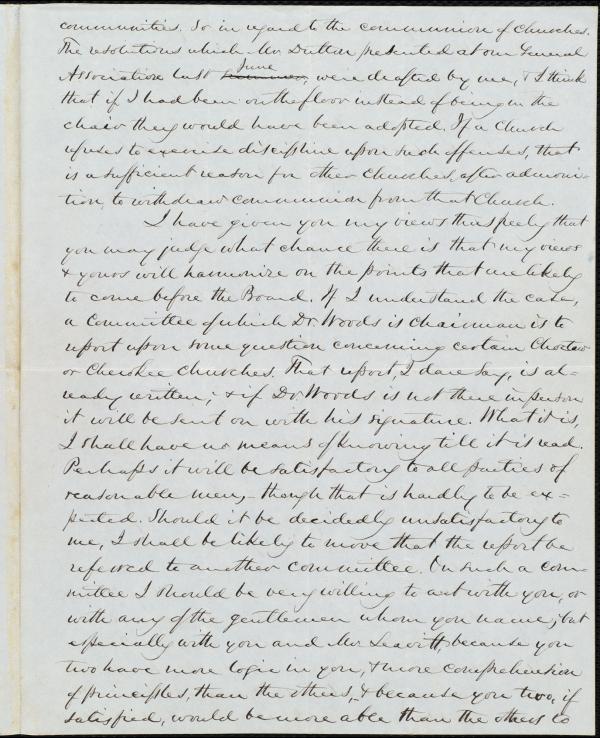 communities. So in regard to the communion of Churches.
The resolutions which Mr Dutton presented at our General
June
Association last summer, were drafted by me, & I think
that if I had been on the floor instead of being in the
chair they would have been adopted. If a Church
refuses to exercise discipline upon such offenses, that
is a sufficient reason for other Churches, after admoni-
tion, to withdraw communion from that Church.
I have given you my views thus freely that
you may judge what chance there is that my views
& yours will harmonize on the points that are likely
to come before the Board. If I understand the case,
a Committee of which Dr. Woods is chairman is to
report upon some question concerning certain Choctaw
or Cherokee Churches. That report, I dare say, is al-
ready written; & if Dr. Woods is not there in person
it will be sent on with his signature. What it is,
I shall have no means of knowing till it is read.
Perhaps it will be satisfactory to all parties of
reasonable men,—though that is hardly to be ex=
pected. Should it be decidedly unsatisfactory to
me, I shall be likely to move that the report be
referred to another committee. On such a com-
mittee I should be very willing to act with you, or
with any of the gentlemen whom you name; but
especially with you and Mr Leavitt, because you
two have more logic in you, & more comprehension
of principles, than the others,—& because you two, if
satisfied, would be more able than the others to